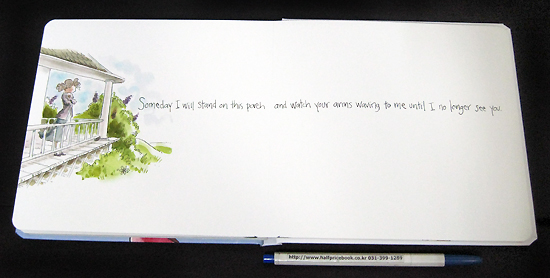 Someday I will stand on this porch and watch your arms waving to me until I no longer see you
http://www.halfpricebook.co.kr 031-399-1289